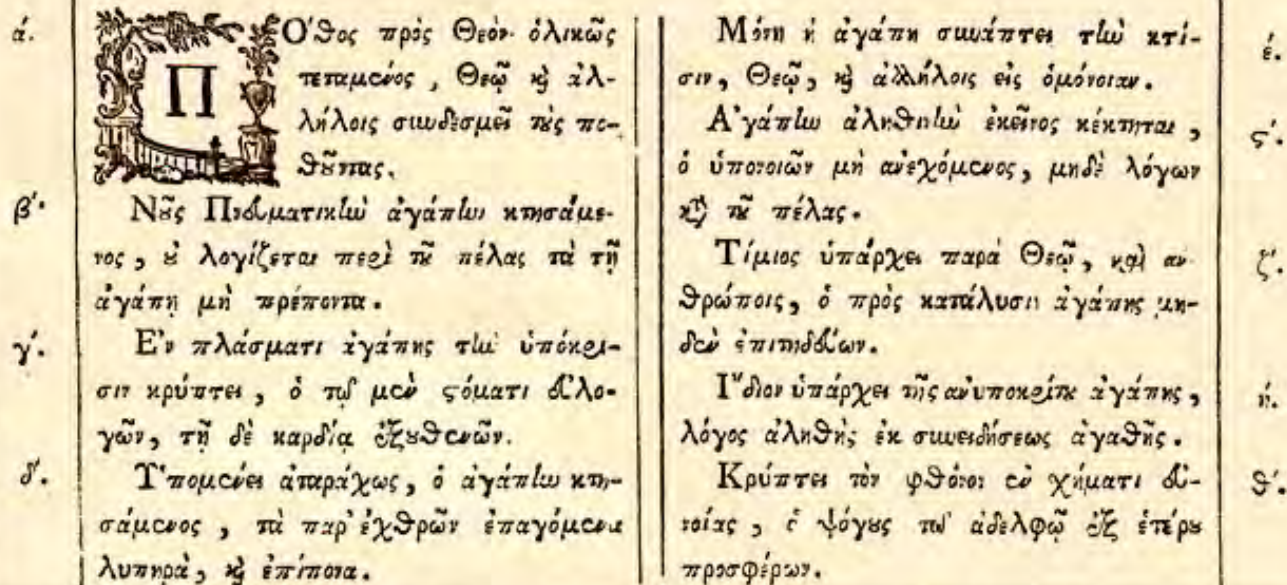 ά. ΠΟ'θος πρὸς Θεὸν ὁλικῶς
τεταμένος, Θεῷ καὶ ἀλ-
λήλοις συνδεσμεῖ τοὺς πο-
θοῦντας.
β'. Νοῦς Πνευματικὴν ἀγάπην κτησάμε-
νος, οὐ λογίζεται περὶ τοῦ πέλας τὰ τῇ
ἀγάπῃ μὴ πρέποντα.
γ'. Ἐν πλάσματι ἀγάπης τὴν ὑπόκρι-
σιν κρύπτει, ὁ τῷ μὲν στόματι εὐλο-
γῶν, τῇ δὲ καρδίᾳ ἐξουθενῶν.
δ'. Ὑπομένει ἀταράχως, ὁ ἀγάπην κτη-
σάμενος, τὰ παρ' ἐχθρῶν ἐπαγόμενα
λυπηρὰ, καὶ ἐπίπονα.
Μόνη ἡ ἀγάπη συνάπτει τὴν κτί-
σιν, Θεῷ, καὶ ἀλλήλοις εἰς ὁμόνοιαν. έ.
Ἀγάπην ἀληθινὴν ἐκεῖνος κέκτηται,
ὁ ὑπονοιῶν μὴ ἀνεχόμενος, μηδὲ λόγων ϛ'.
κατὰ τοῦ πέλας.
Τίμιος ὑπάρχει παρὰ Θεῷ, καὶ ἀν-
θρώποις, ὁ πρὸς κατάλυσιν ἀγάπης μη- ζ'.
δὲν ἐπιτηδεύων.
Ἴδιον ὑπάρχει τῆς ἀνυποκρίτου ἀγάπης, ή.
λόγος ἀληθὴς ἐκ συνειδήσεως ἀγαθῆς.
Κρύπτει τὸν φθόνον ἐν χήματι εὐ- θ'.
νοίας, ὁ ψόγους τῷ ἀδελφῷ ἐξ ἑτέρου
προσφέρων.